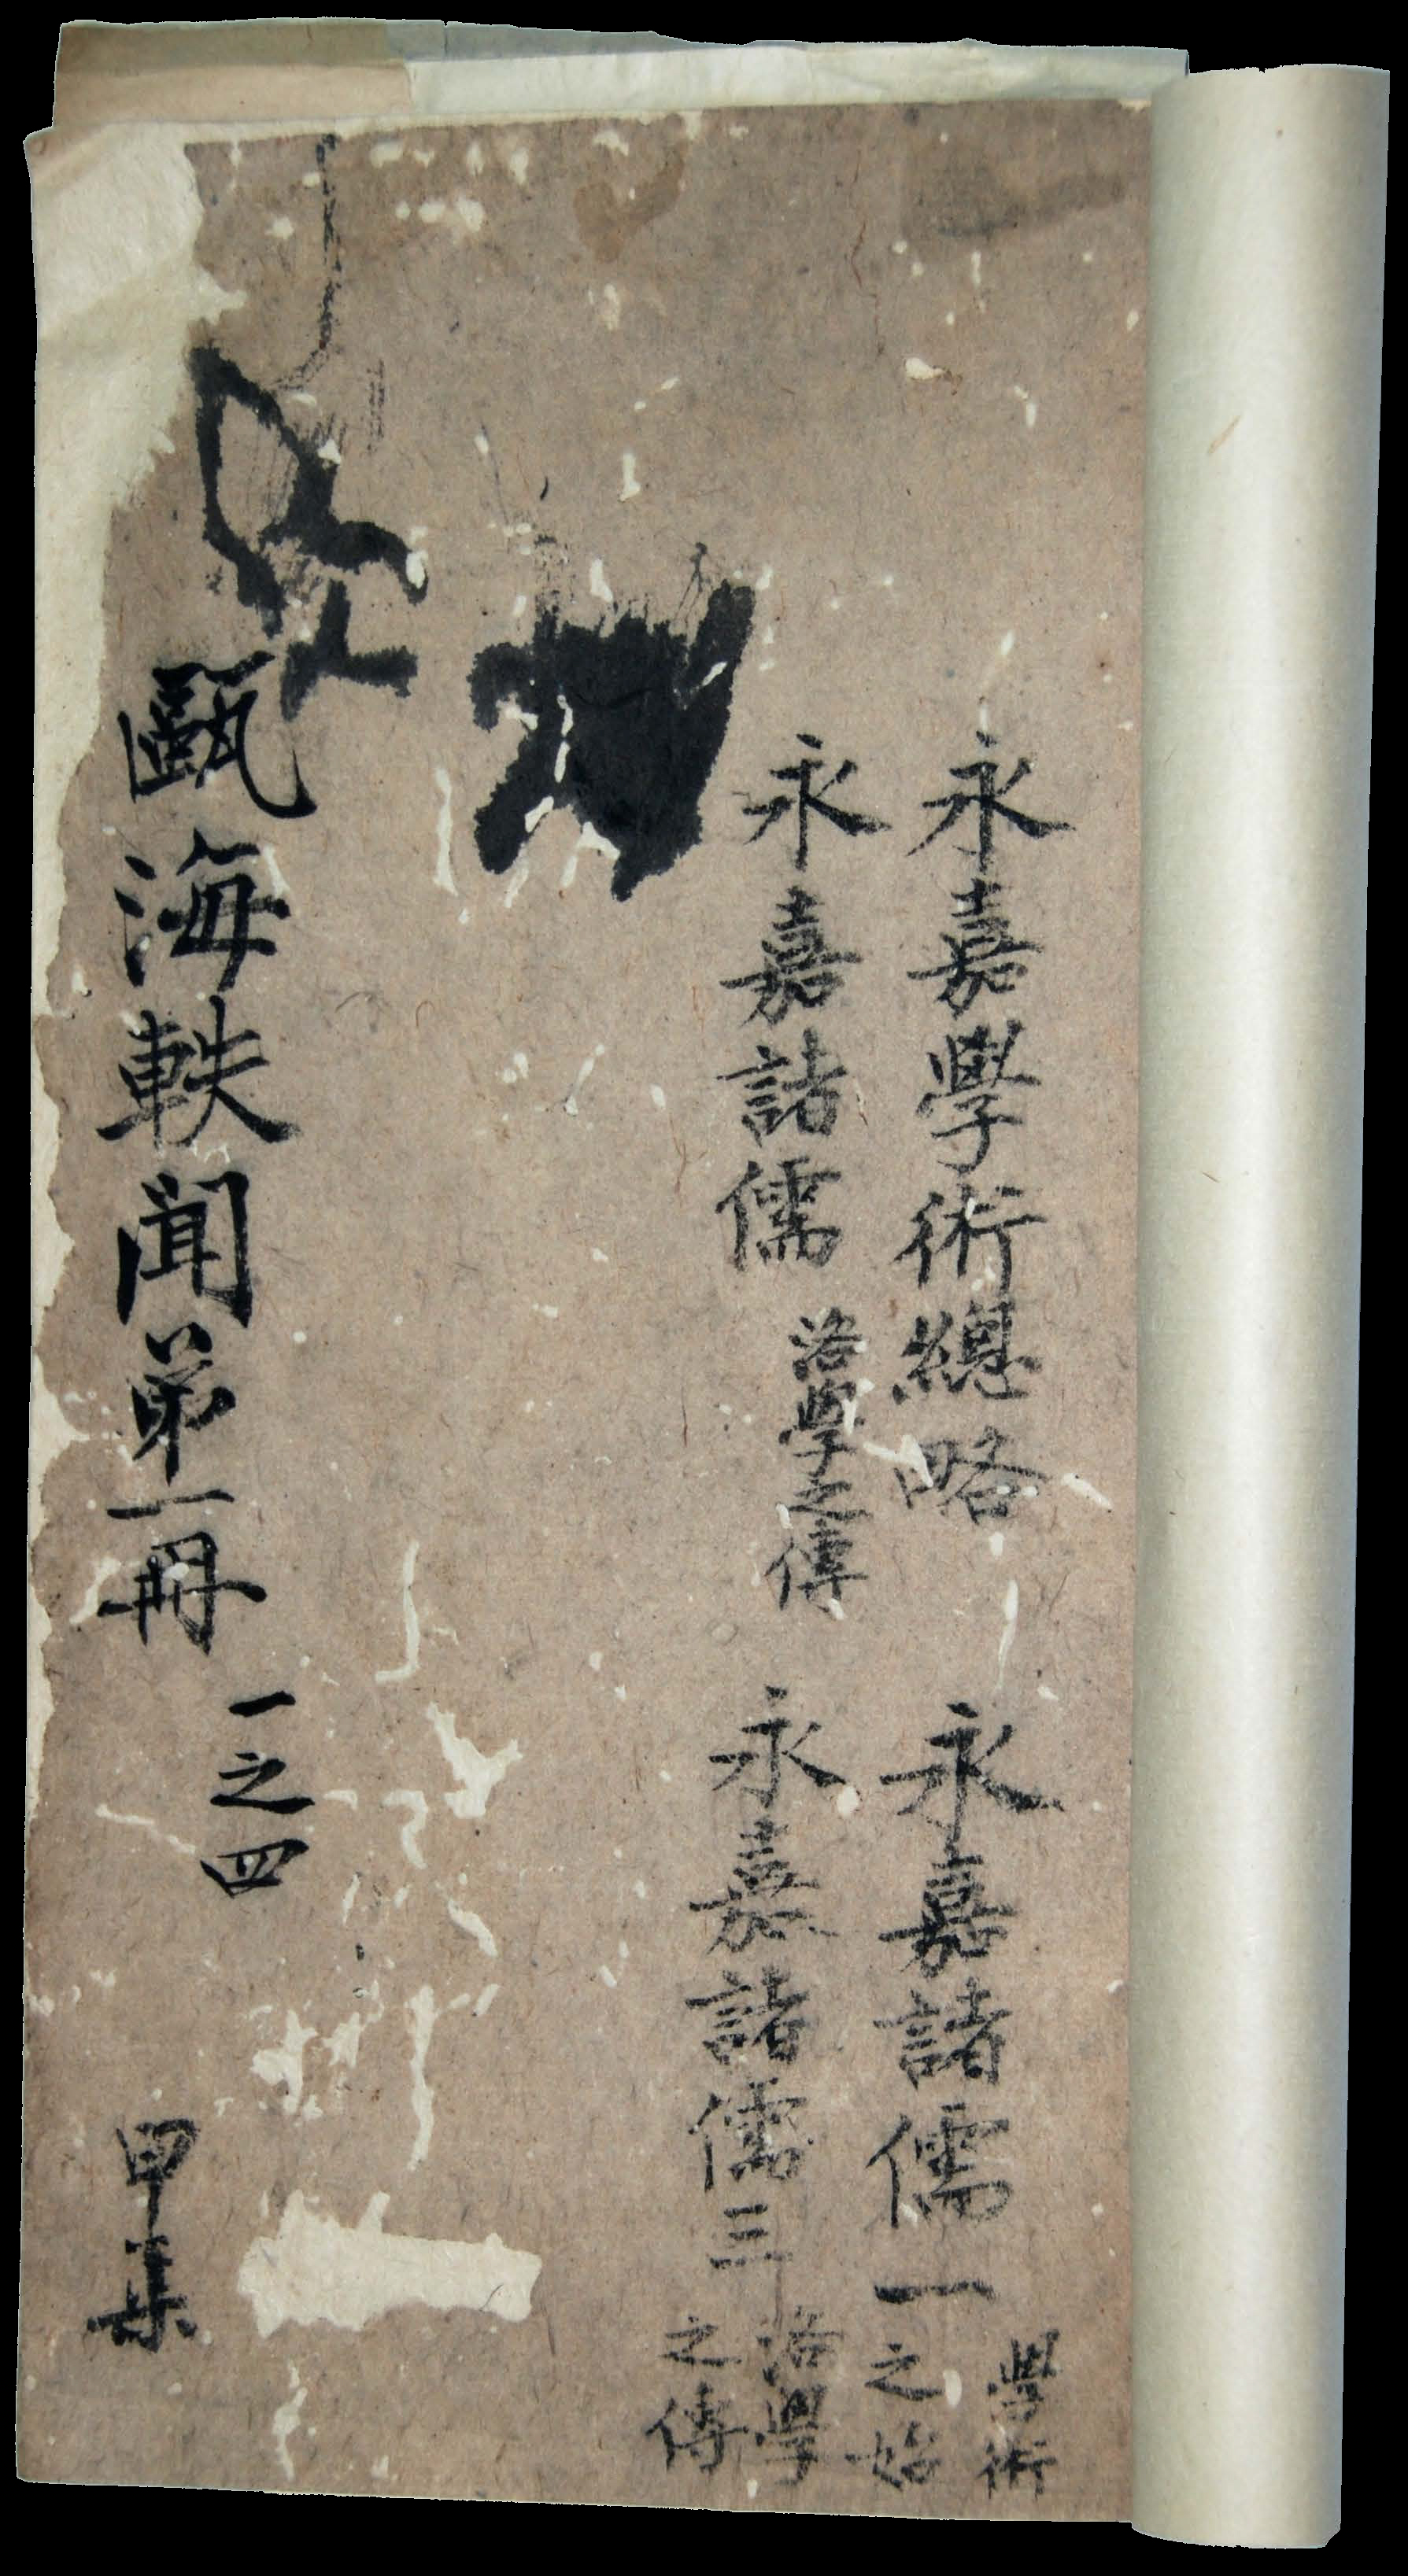 永嘉學術總略
永嘉諸儒一 學術之始
永嘉諸儒 洛學之傳
永嘉諸儒三 洛學之傳
甌海軼聞第一冊
一之四
甲集